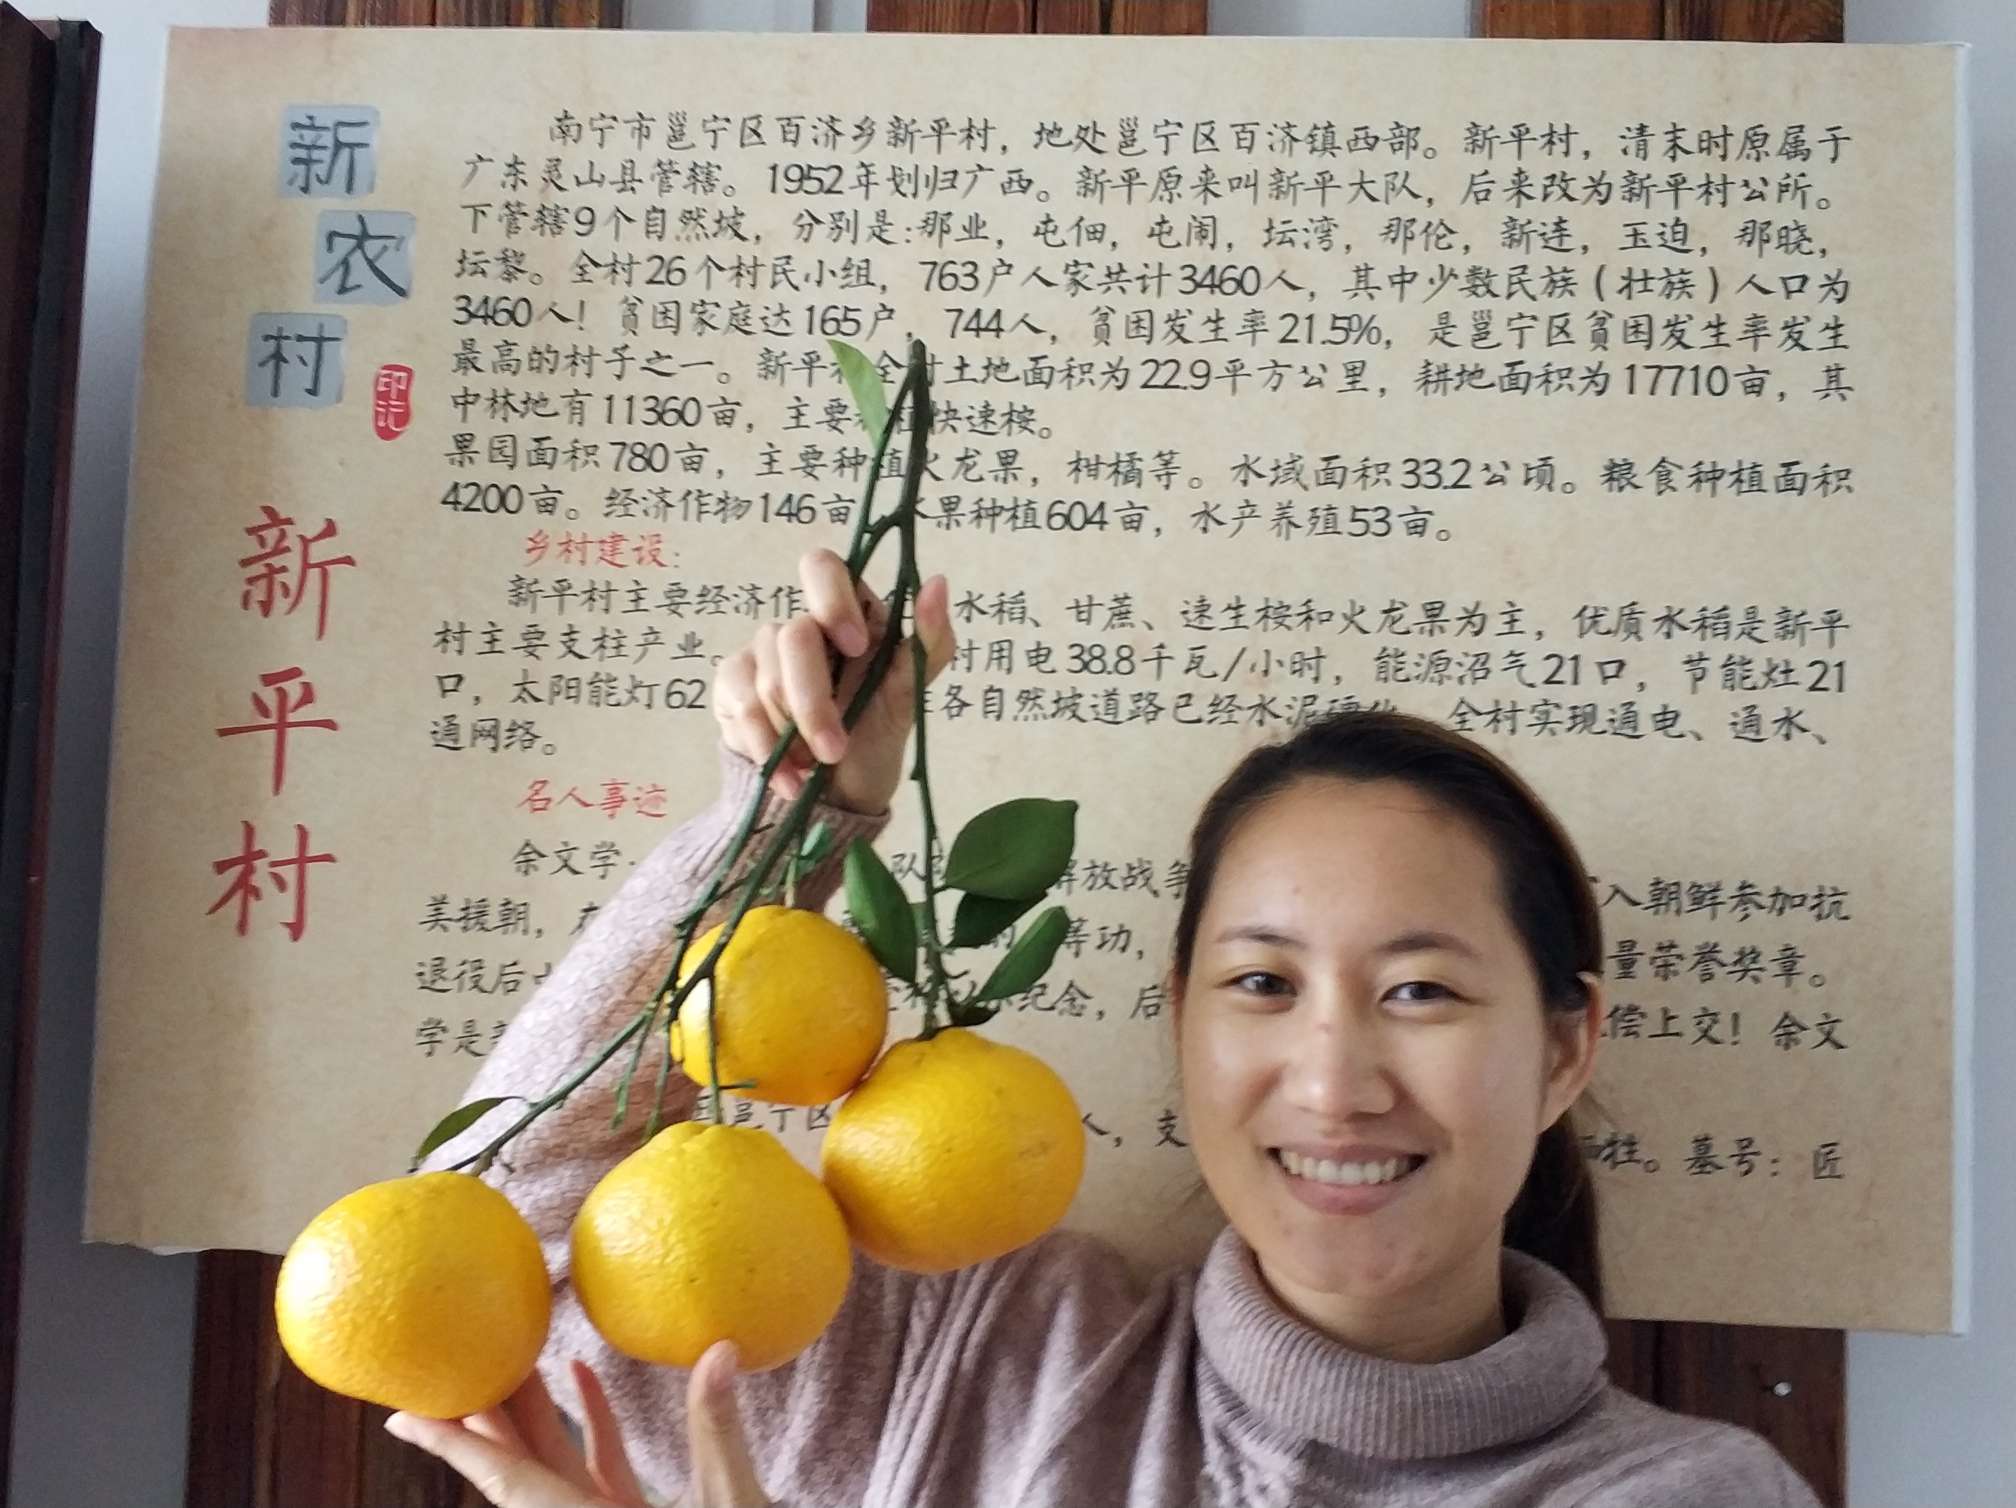 新农村
印记
新平村
南宁市邕宁区百济乡新平村，地处邕宁区百济镇西部。新平村，清末时原属于
广东灵山县管辖。1952年划归广西。新平原来叫新平大队，后来改为新平村公所。
下管辖9个自然坡，分别是：那业，屯佃，屯闹，坛湾，那伦，新连，玉迫，那晓，
坛黎。全村26个村民小组，763户人家共计3460人，其中少数民族（壮族）人口为
3460人！贫困家庭达165户，744人，贫困发生率21.5%，是邕宁区贫困发生率发生
最高的村子之一。新平村全村土地面积为22.9平方公里，耕地面积为17710亩，其
中林地有11360亩，主要种植快速桉。
果园面积780亩，主要种植火龙果，柑橘等。水域面积33.2公顷。粮食种植面积
4200亩。经济作物146亩 水果种植604亩，水产养殖53亩。
乡村建设：
新平村主要经济作 水稻、甘蔗、速生桉和火龙果为主，优质水稻是新平
村主要支柱产业。 村用电38.8千瓦/小时，能源沼气21口，节能灶21
口，太阳能灯62 各自然坡道路已经水泥硬化 全村实现通电、通水、
通网络。
名人事迹
余文学 队 解放战争 入朝鲜参加抗
美援朝， 等功， 量荣誉奖章。
退役后 纪念，后 偿上交！余文
学是
邕宁区 人，支 牺牲。墓号：匠